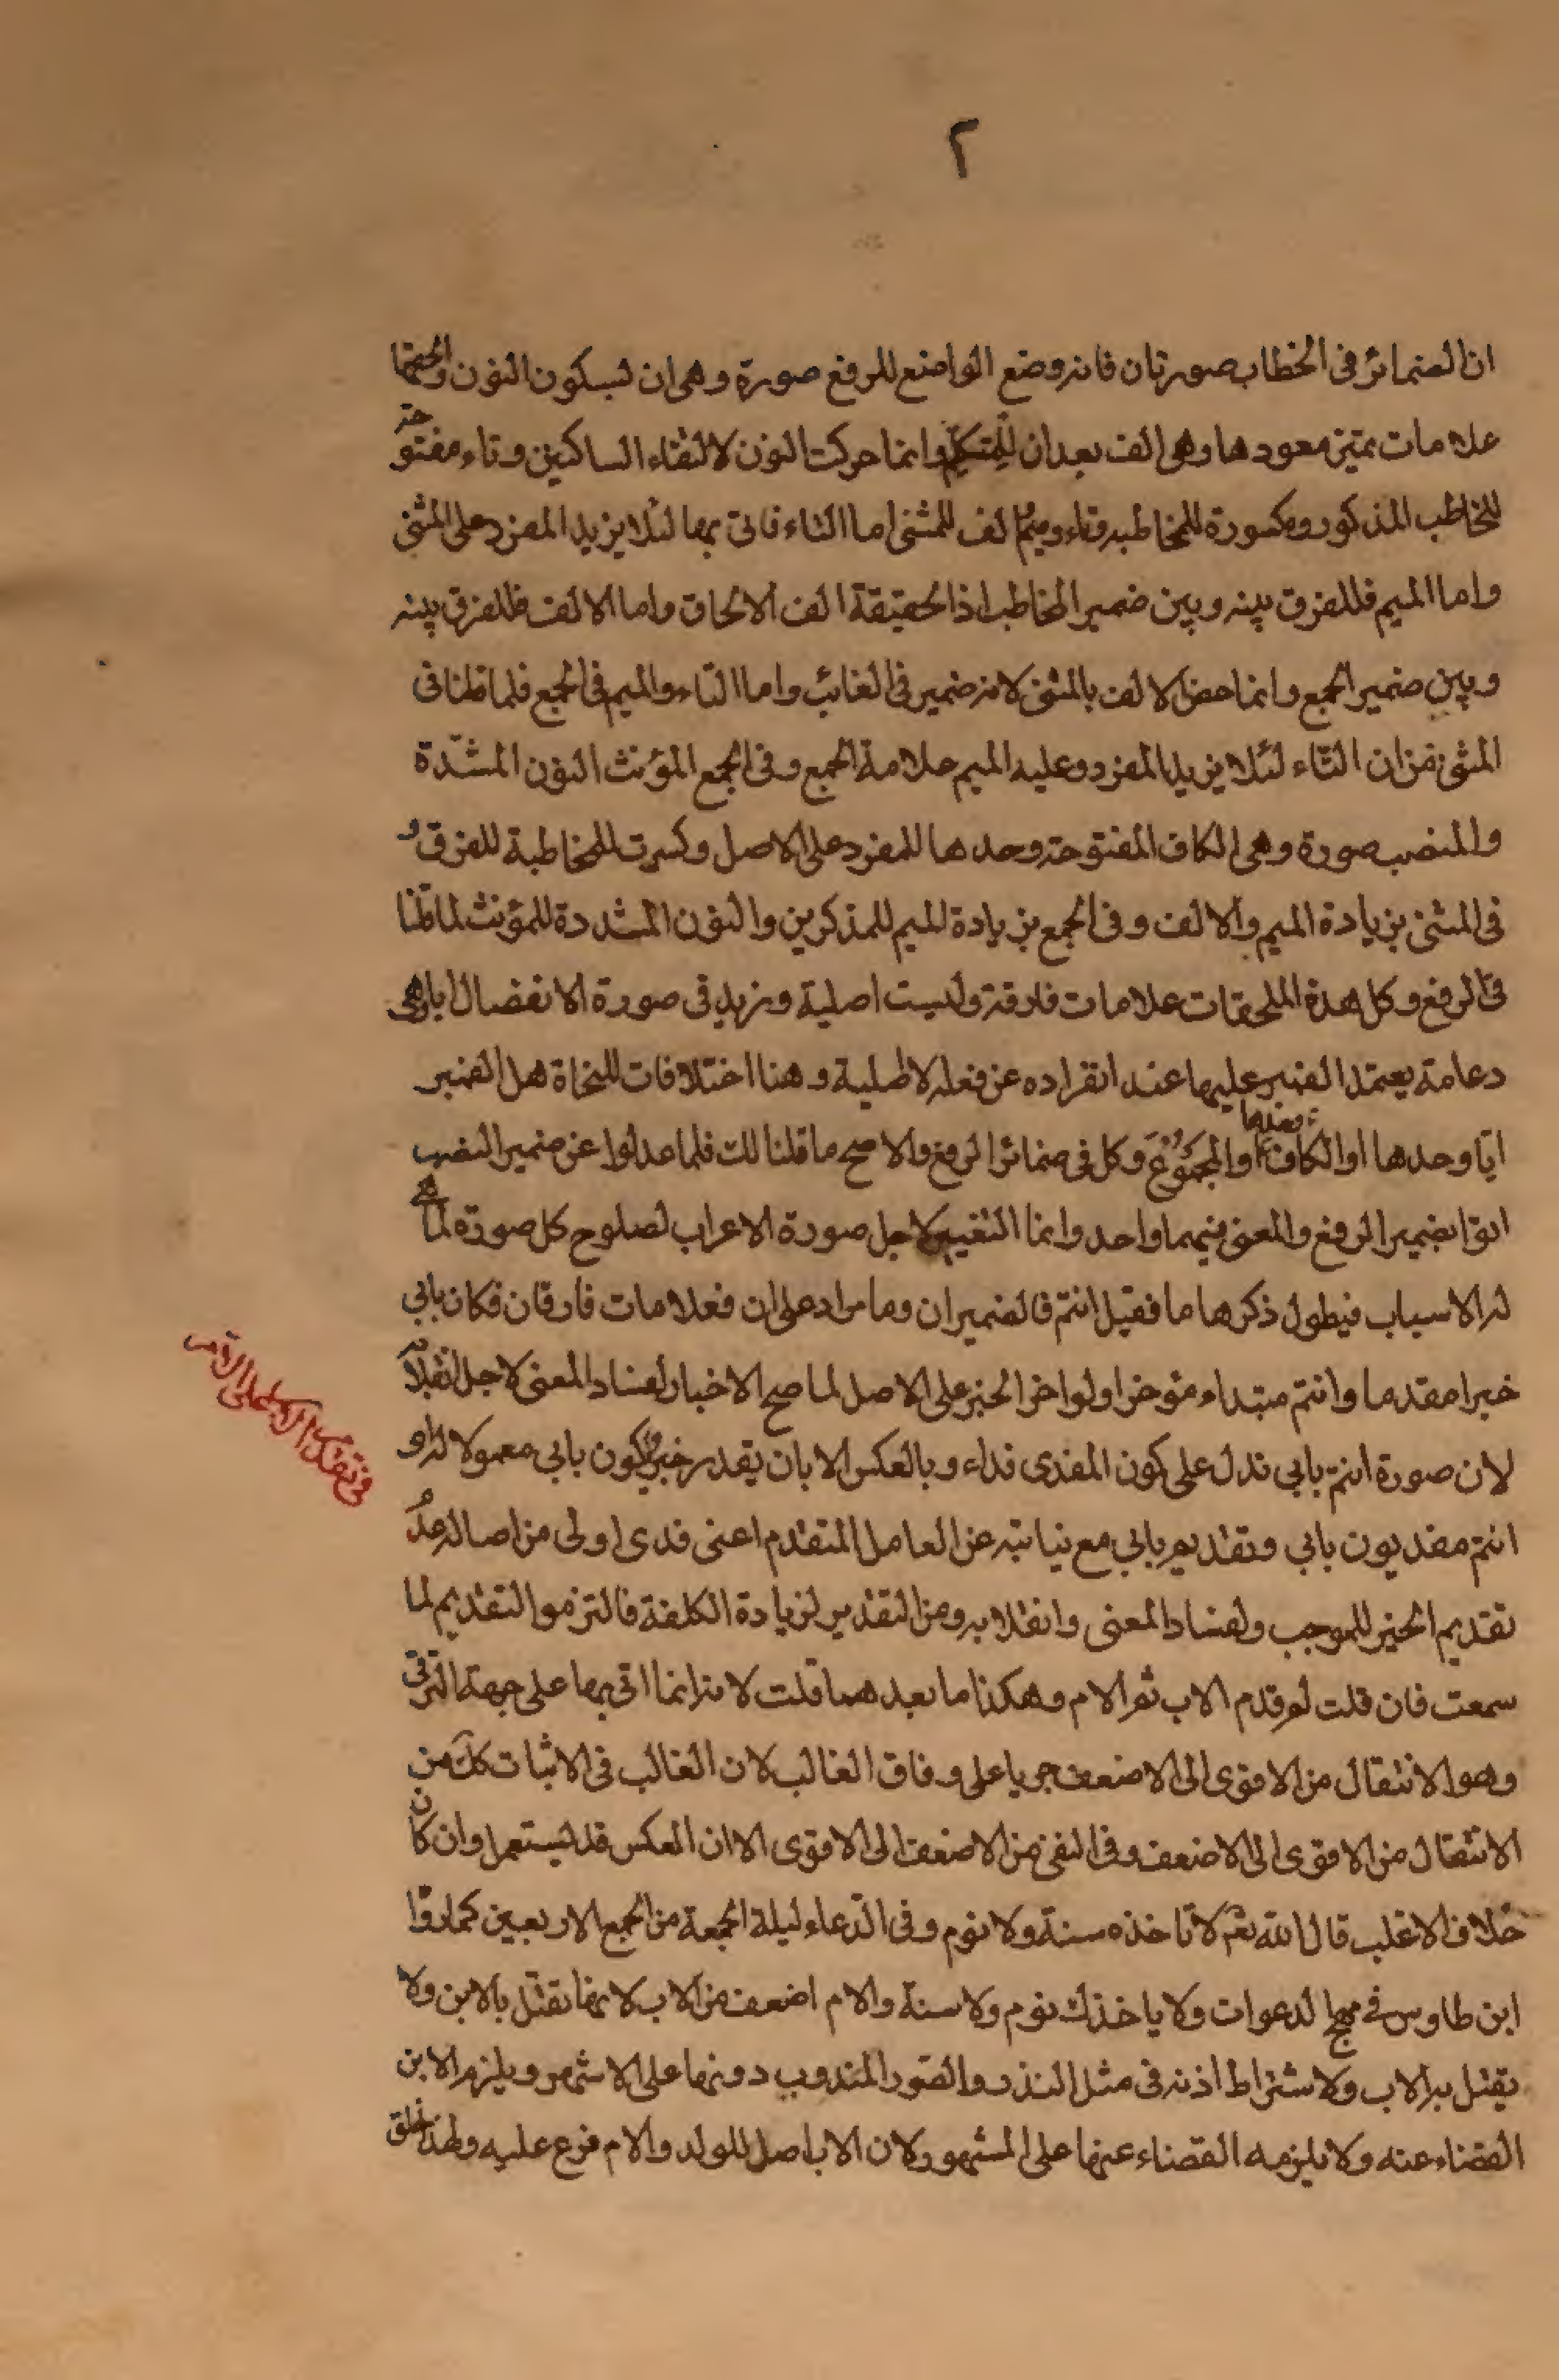 ٢
ان الضمائر فى الخطاب صورتان فانه وضع الواضع للرفع صورة وهى ان بسكون النون والحقتها
علامات تميز معودها وهى الف بعد ان للمتكلم وانما حركت النون لالتقاء الساكنين وتاء مفتوحة
للمخاطب المذكور ومكسورة للمخاطبة وتاء وميم والف للمثنى اما التاء فاتى بها لئلا يزيد المفرد على المثنى
واما الميم فللفرق بينه وبين ضمير المخاطب اذا لحقته الف الالحاق واما الالف فللفرق بينه
وبين ضمير الجمع وانما خص الالف بالمثنى لانه ضمير فى الغائب واما التاء والميم فى الجمع فلما قلنا فى
المثنى من ان التاء لئلا يزيد المفرد وعليه الميم علامة الجمع وفى الجمع المؤنث النون المشدّدة
وللنصب صورة وهى الكاف المفتوحة وحدها للمفرد على الاصل وكسرت للمخاطبة للفرق و
فى المثنى بزيادة الميم والالف وفى الجمع بزيادة الميم للمذكرين والنون المشددة للمؤنث لما قلنا
فى الرفع وكل هذه الملحقات علامات فارقة وليست اصلية وزيد فى صورة الانفصال ايا وهى
دعامة يعتمد الضمير عليها عند انفراده عن فعله لاصلية وهنا اختلافات للنحاة هل الضمير
ايّا وحدها او الكاف وحدها او المجموع وكل فى ضمائر الرفع والاصح ما قلنا لك فلما عدلوا عن ضمير النصب
اتوا بضمير الرفع والمعنى فيهما واحد وانما التغيير لاجل صورة الاعراب لصلوح كل صورة لما هى
له الاسباب فيطول ذكرها ما فقيل انتم فالضمير ان وما زاد على ان فعلامات فارقان فكان بابي
خبرا مقدما وانتم مبتداء مؤخرا ولو اخر الخبر على الاصل لما صح الاخبار لفساد المعنى لاجل انقلابه
لان صورة انتم بابي تدل على كون المفدى فداء وبالعكس الا بان يقدر خبر ويكون بابي معمولا له او
انتم مفديون بابي وتقديم بابي مع نيابته عن العامل المتقدم اعنى فدى اولى من اصالة عدم
تقديم الخبر للموجب ولفساد المعنى وانقلابه ومن التقدير لزيادة الكلفة فالتزموا التقديم لما
سمعت فان قلت لم قدم الاب ثم الام وهكذا ما بعدهما قلت لانه انما اتى بها على جهة الترقى
وهو الانتقال من الاقوى الى الاضعف جريا على وفاق الغالب لان الغالب فى الاثبات كان من
الانتقال من الاقوى الى الاضعف وفى النفى من الاضعف الى الاقوى الا ان العكس قد يستعمل وان كان
خلاف الاغلب قال الله تعم لا تاخذه سنة ولا نوم وفى الدّعاء ليلة الجمعة من الجمع الاربعين كما رواه
ابن طاوس فى مهج الدعوات ولا ياخذك نوم ولا سنة والام اضعف من الاب لانها تقتل بالابن ولا
يقتل به الاب ولاشتراط اذنه فى مثل النذر والصّوم المندوب دونها على الاشهر ويلزم الابن
القضاء عنه ولا يلزمه القضاء عنها على المشهور ولان الاب اصل للولد والام فرع عليه ولهذا خلق
فى تقديم الاب على الام